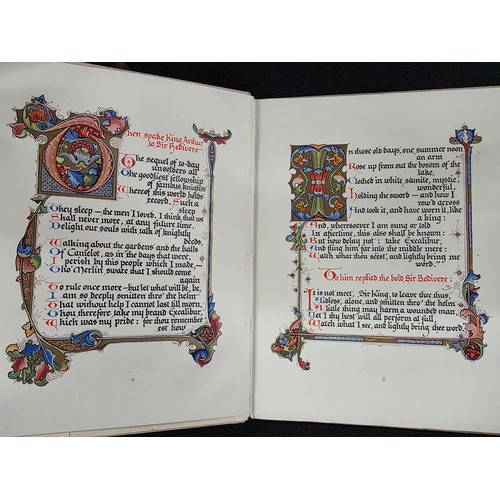 Then spake King Arthur
to Sir Bedivere:—
The sequel of to-day
unsolders all
The goodliest fellowship
of famous knights
Whereof this world holds
record. Such a
sleep
They sleep — the men I loved. I think that we
Shall never more, at any future time,
Delight our souls with talk of knightly
deeds,
Walking about the gardens and the halls
Of Camelot, as in the days that were.
I perish by this people which I made,—
Tho' Merlin sware that I should come
again
To rule once more — but let what will be, be,
I am so deeply smitten thro' the helm
That without help I cannot last till morn.
Thou therefore take my brand Excalibur,
Which was my pride: for thou remember
est how
In those old days, one summer noon
an arm
Rose up from out the bosom of the
lake,
Clothed in white samite, mystic,
wonderful,
Holding the sword — and how I
row'd across
And took it, and have worn it, like
a king:
And, wheresoever I am sung or told
In aftertime, this also shall be known:
But now delay not: take Excalibur,
And fling him far into the middle mere:
Watch what thou seest, and lightly bring me
word."
To him replied the bold Sir Bedivere:
It is not meet, Sir King, to leave thee thus,
Aidless, alone, and smitten thro' the helm.
A little thing may harm a wounded man.
Yet I thy hest will all perform at full,
Watch what I see, and lightly bring thee word.
5